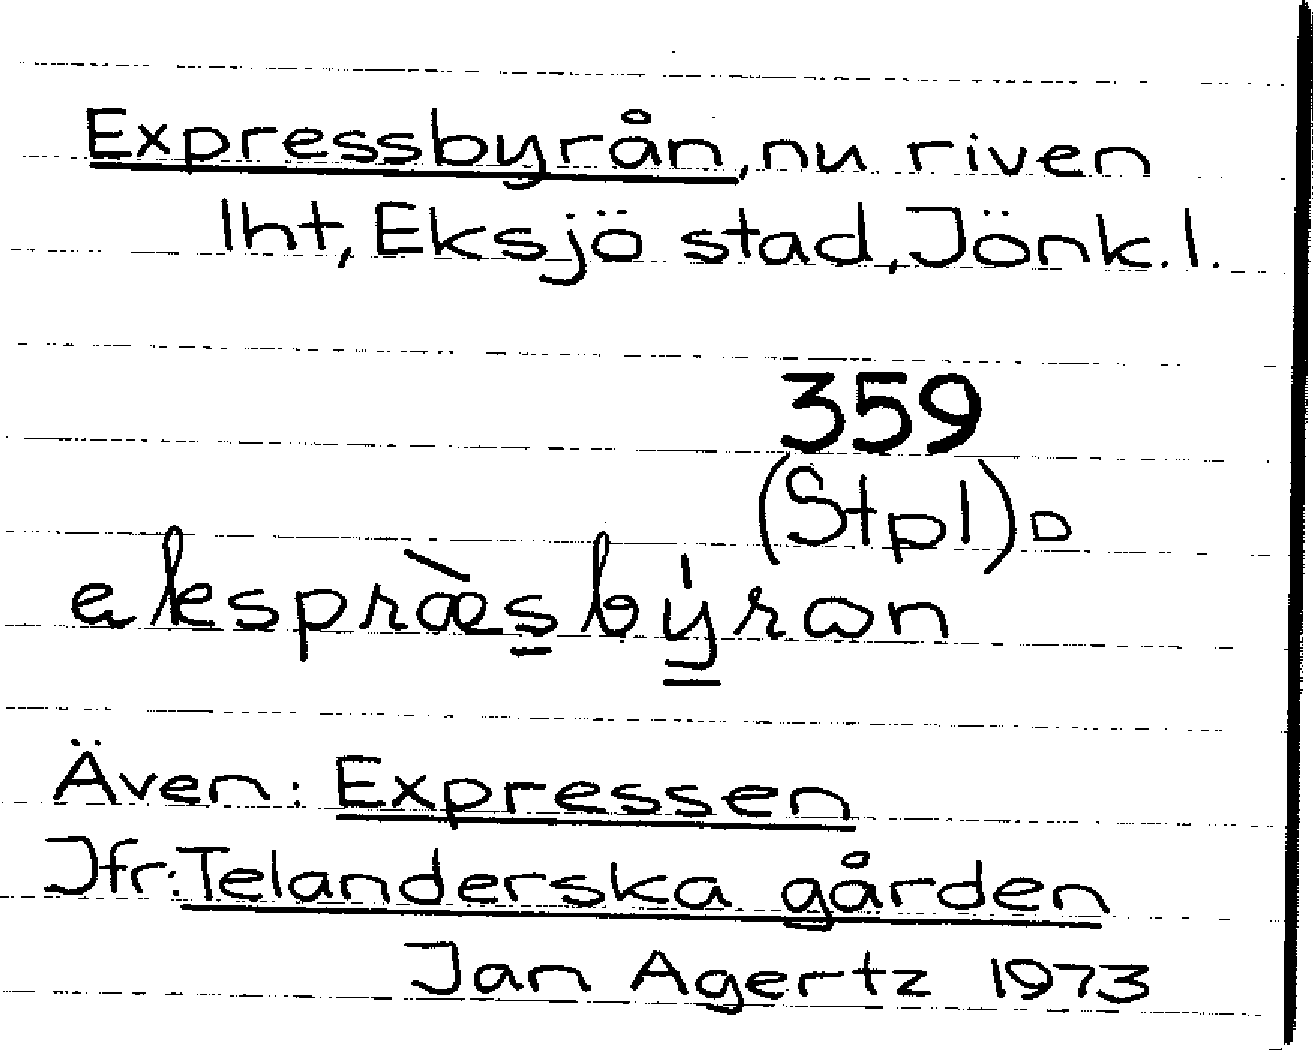 Expressbyrån, nu riven
lht, Eksjö stad, Jönk.l.
359
(Stpl)D
ekspræ̀sbý̳ron
Även: Expressen
Jfr: Telanderska gården
Jan Agertz 1973